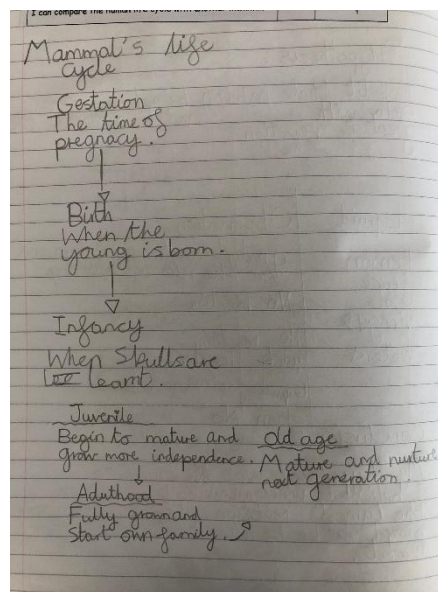 I can compare the human life cycle with another
Mammal's life
cycle
Gestation
The time of
pregnacy.
Birth
When the
young is born.
Infancy
When Skulls are
learnt.
Juvenile
Begin to mature and
grow more independence.
Aduthood
Fully grown and
Start own family.
old age
Mature and nurture
next generation.